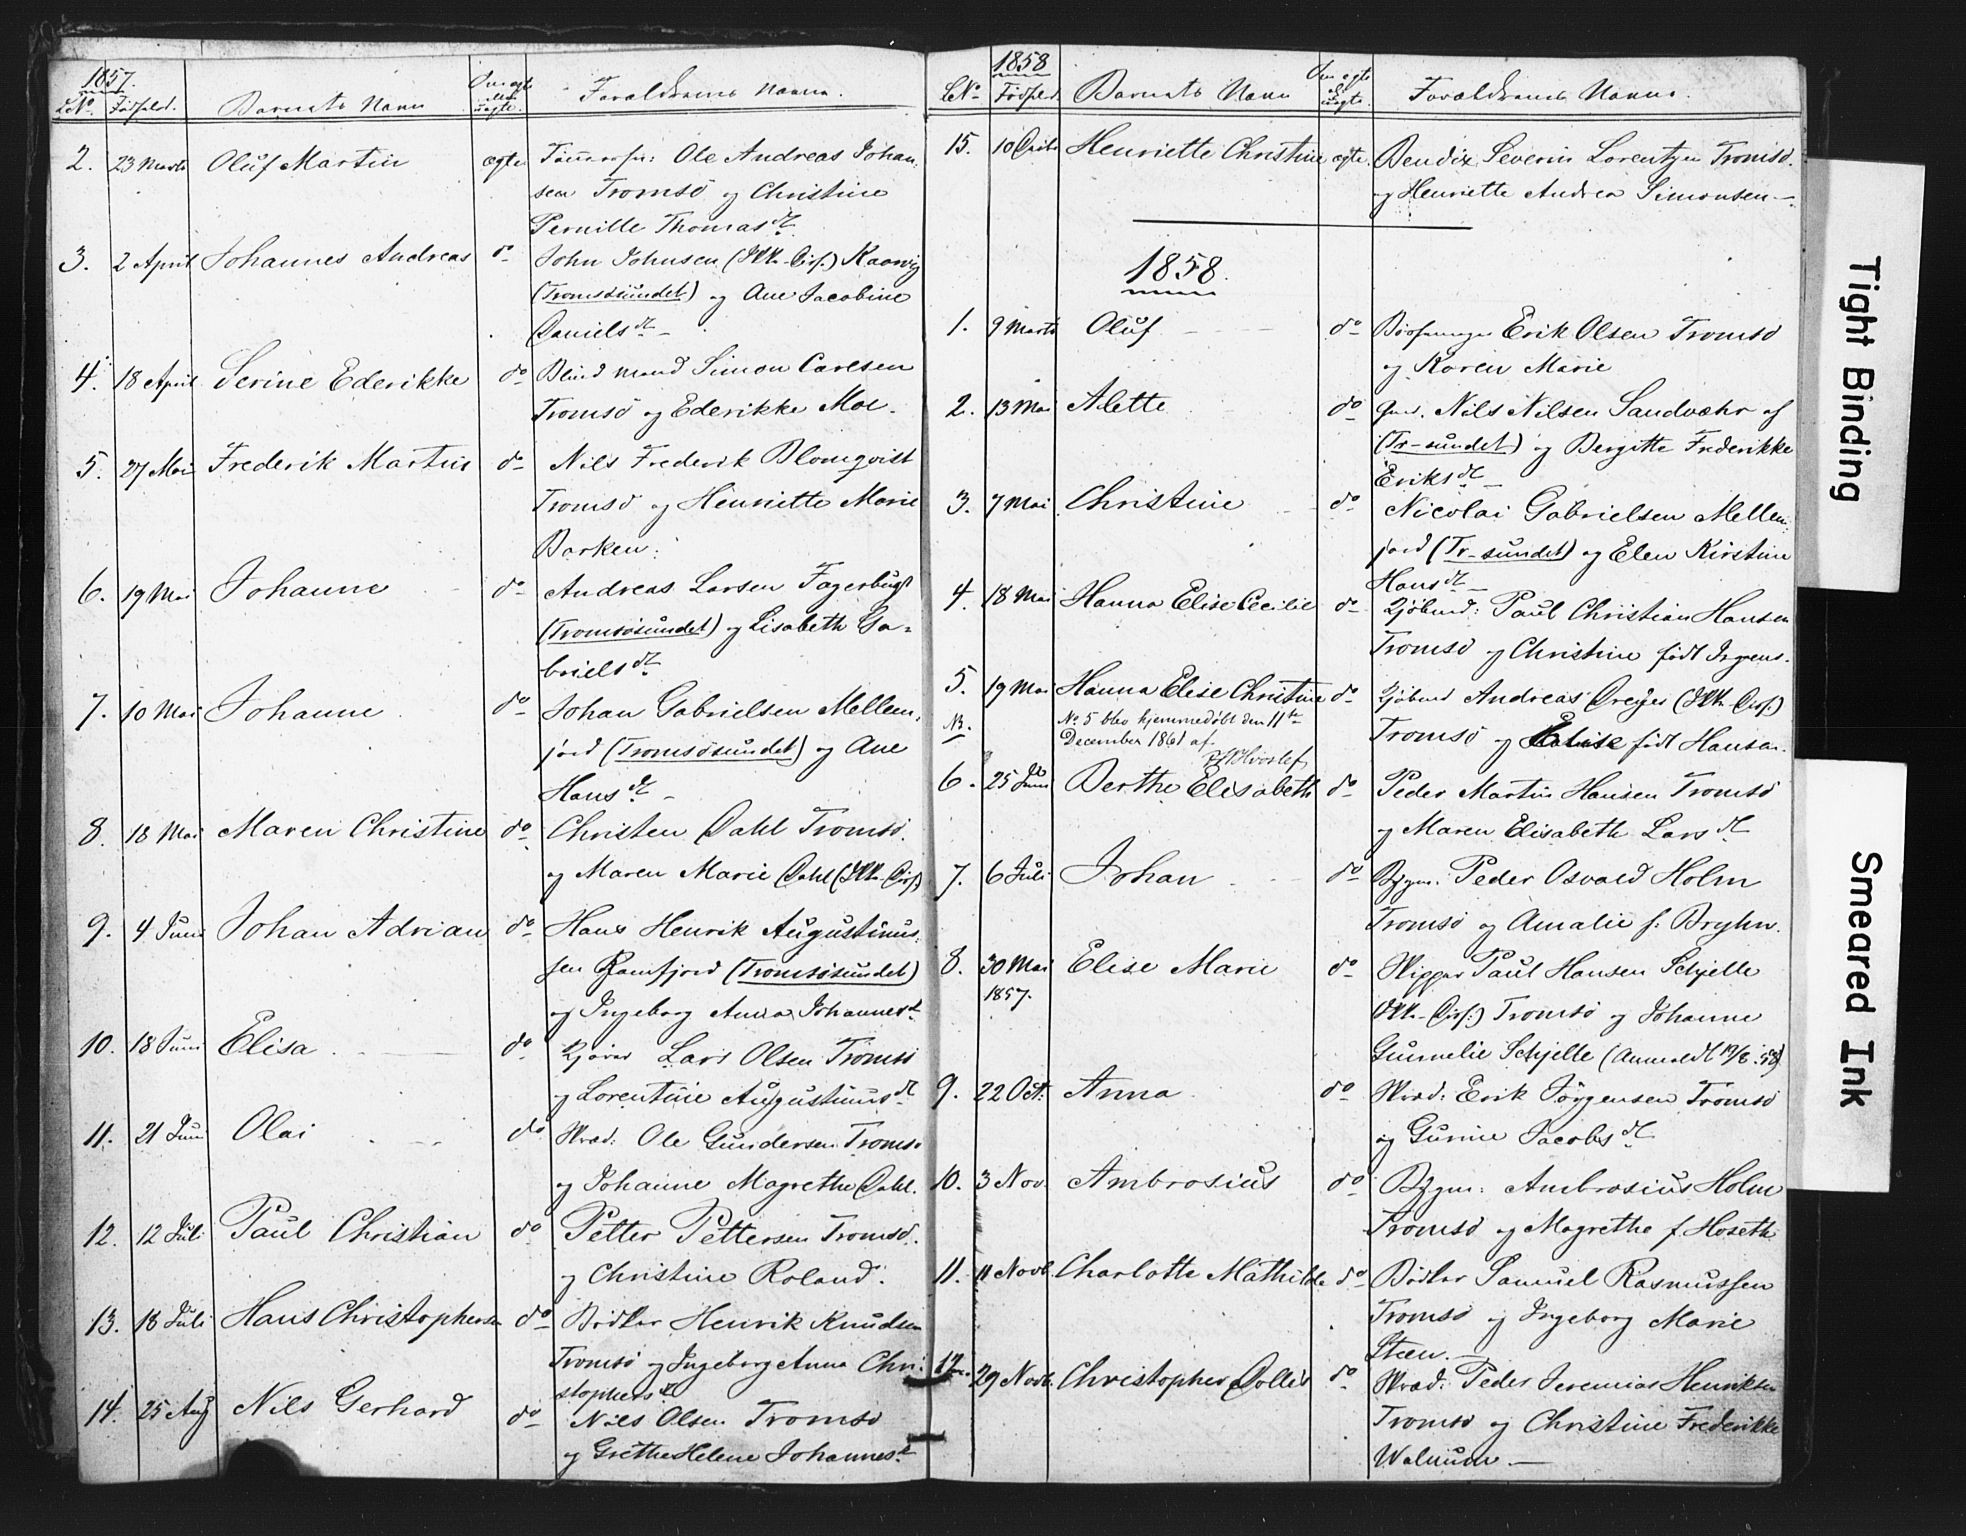 1857.
L.No. Fødseld. Barnets Navn Om ægte eller uægte. Forældrenes Navne.
2. 23 Marts Oluf Martin ægte Ole Andreas Johan-
sen Tromsö og Christine
Pernille Thomasdt.
3. 2 April Johannes Andreas do John Johnsen Kaavig
(Tromsösundet) og Ane Jacobine
Danielsdt.
4. 18 April Serine Ederikke do Blind mand Simon Carlsen
Tromsö og Ederikke Moe.
5. 27 Mai Frederik Martin do Nils Frederik Blomqvist
Tromsö og Henriette Marie
Barken.
6. 19 Mai Johanne do Andreas Larsen Fagerbugt
(Tromsösundet) og Lisabeth Ga-
brielsdt.
7. 10 Mai Johanne do Johan Gabrielsen Mellem-
jord (Tromsösundet) og Ane
Hansdt.
8. 18 Mai Maren Christine do Christen Dahl Tromsö.
og Maren Marie Dahl
9. 4 Juni Johan Adrian do Hans Henrik Augustinus-
sen Ramfjord (Tromsösundet)
og Ingeborg Anna Johannesdt.
10. 18 Juni Elisa do Lars Olsen Tromsö
og Lorentine Augustinusdt.
11. 21 Juni Olai do Skræd: Ole Gundersen Tromsö
og Johanne Magrethe Dahl.
12. 12 Juli Paul Christian do Petter Pettersen Tromsö.
og Christine Roland.
13. 18 Juli Hans Christophersen do Bödker Henrik Knudsen
Tromsö og Ingeborg Anna Chri-
stophersdt.
14. 25 Aug Nils Gerhard do Nils Olsen Tromsö
og Grethe Helene Johannesdt.
1858
L.No. Fødseld. Barnets Navn Om ægte el. uægte. Forældrenes Navne.
15. 10 Henriette Christine ægte. Bendix Severin Lorentzen Tromsö.
og Henriette Andrea Simonsen
1858.
1. 9 Marts Oluf do Erik Olsen Tromsö
og Karen Marie
2. 13 Mai Alette do Nils Nilsen Sandvæhr af
(Tr-sundet) og Bergitte Frederikke
Eriksdt.
3. 7 Mai Christine do Nicolai Gabrielsen Mellem-
jord (Tr-sundet) og Elen Kirstine
Hansdt.
4. 18 Mai Hanna Elise Cecilie do Kjöbmd: Paul Christian Hansen
Tromsö og Christine födt
5. 19 Mai Hanna Elise Christine do Kjöbmd Andreas Dreyer
NB. No. 5 blev hjemmedøbt den 11te
December 1861 af
Hvoslef
Tromsö og Elise födt Hansen.
6. 25 Juni Berthe Elisabeth do Peder Martin Hansen Tromsö
og Maren Elisabeth Larsdt.
7. 6 Juli Johan do Bygm. Peder Osvald Holm
Tromsö og Amalie f. Bryhn.
8. 30 Mai Elise Marie do Skipper Paul Hansen Schjelle
1857.
Tromsö og Johanne
Gurnelie Schjelle (Anmeldt 19/8 58)
9. 22 Oct. Anna do Skræd: Erik Jörgensen Tromsö
og Gurine Jacobsdt.
10. 3 Nov. Ambrosius do Bygm: Ambrosius Holm
Tromsö og Magrethe f. Hoseth
11. 11 Novb. Charlotte Mathilde do Bödker Samuel Rasmussen
Tromsö og Ingeborg Marie
Steen.
12. 29 Novb. Christopher Collis do Skræd: Peder Jeremias Henriksen
Tromsö og Christine Frederikke
Walnum
Tight Binding
Smeared Ink